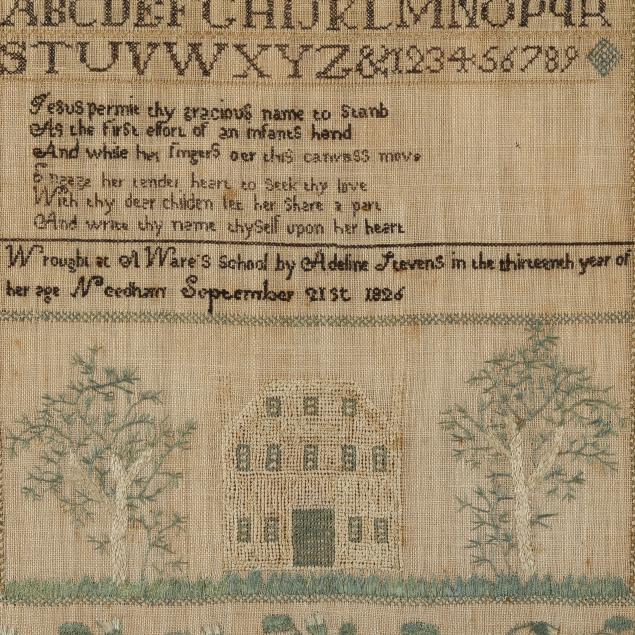 ABCDEFGHIJKLMNOPQR
STUVWXYZ&123456789
Jesus permit thy gracious name to stand
As the first efort of an infants hand
And while her fingers oer this canvass move
Engage her tender heart to seek thy love
With thy dear childen let her share a part
And write thy name thyself upon her heart
Wrought at A Ware's School by Adeline Stevens in the thirteenth year of
her age Needham September 21st 1826